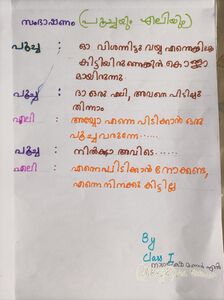 സംഭാഷണം (പൂച്ചയും എലിയും)
പൂച്ച : ഓ വിശന്നിട്ടു വയ്യ എന്തെങ്കിലും
കിട്ടിയിരുന്നെങ്കിൽ കൊള്ളാ
മായിരുന്നു
പൂച്ച : ദാ ഒരു എലി, അവനെ പിടിച്ചു
തിന്നാം
എലി : അയ്യോ എന്നെ പിടിക്കാൻ ഒരു
പൂച്ച വരുന്നേ-----
പൂച്ച : നിൽക്കൂ അവിടെ-----
എലി : എന്നെ പിടിക്കാൻ നോക്കണ്ട,
എന്നെ നിനക്കു കിട്ടില്ല
By
Class I